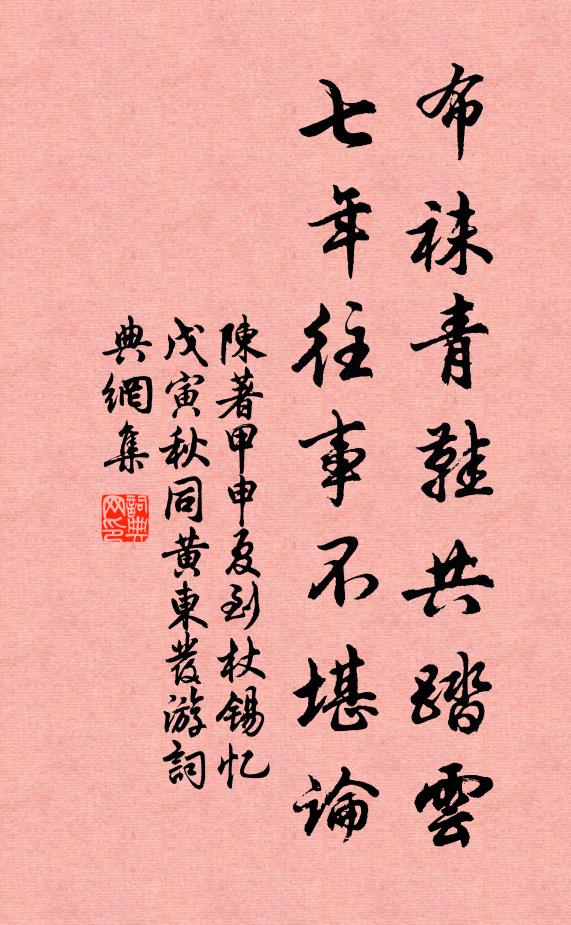 布袜青鞵共踏雲
七年往事不堪論
陳著甲申夏到杖錫忆
戊寅秋同黄東發游詞
典網集
詞典网印